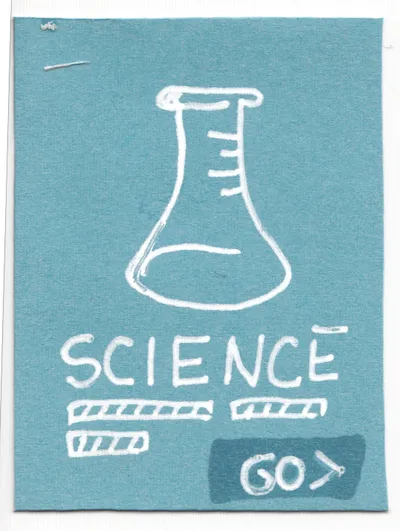 SCIENCE
GO>